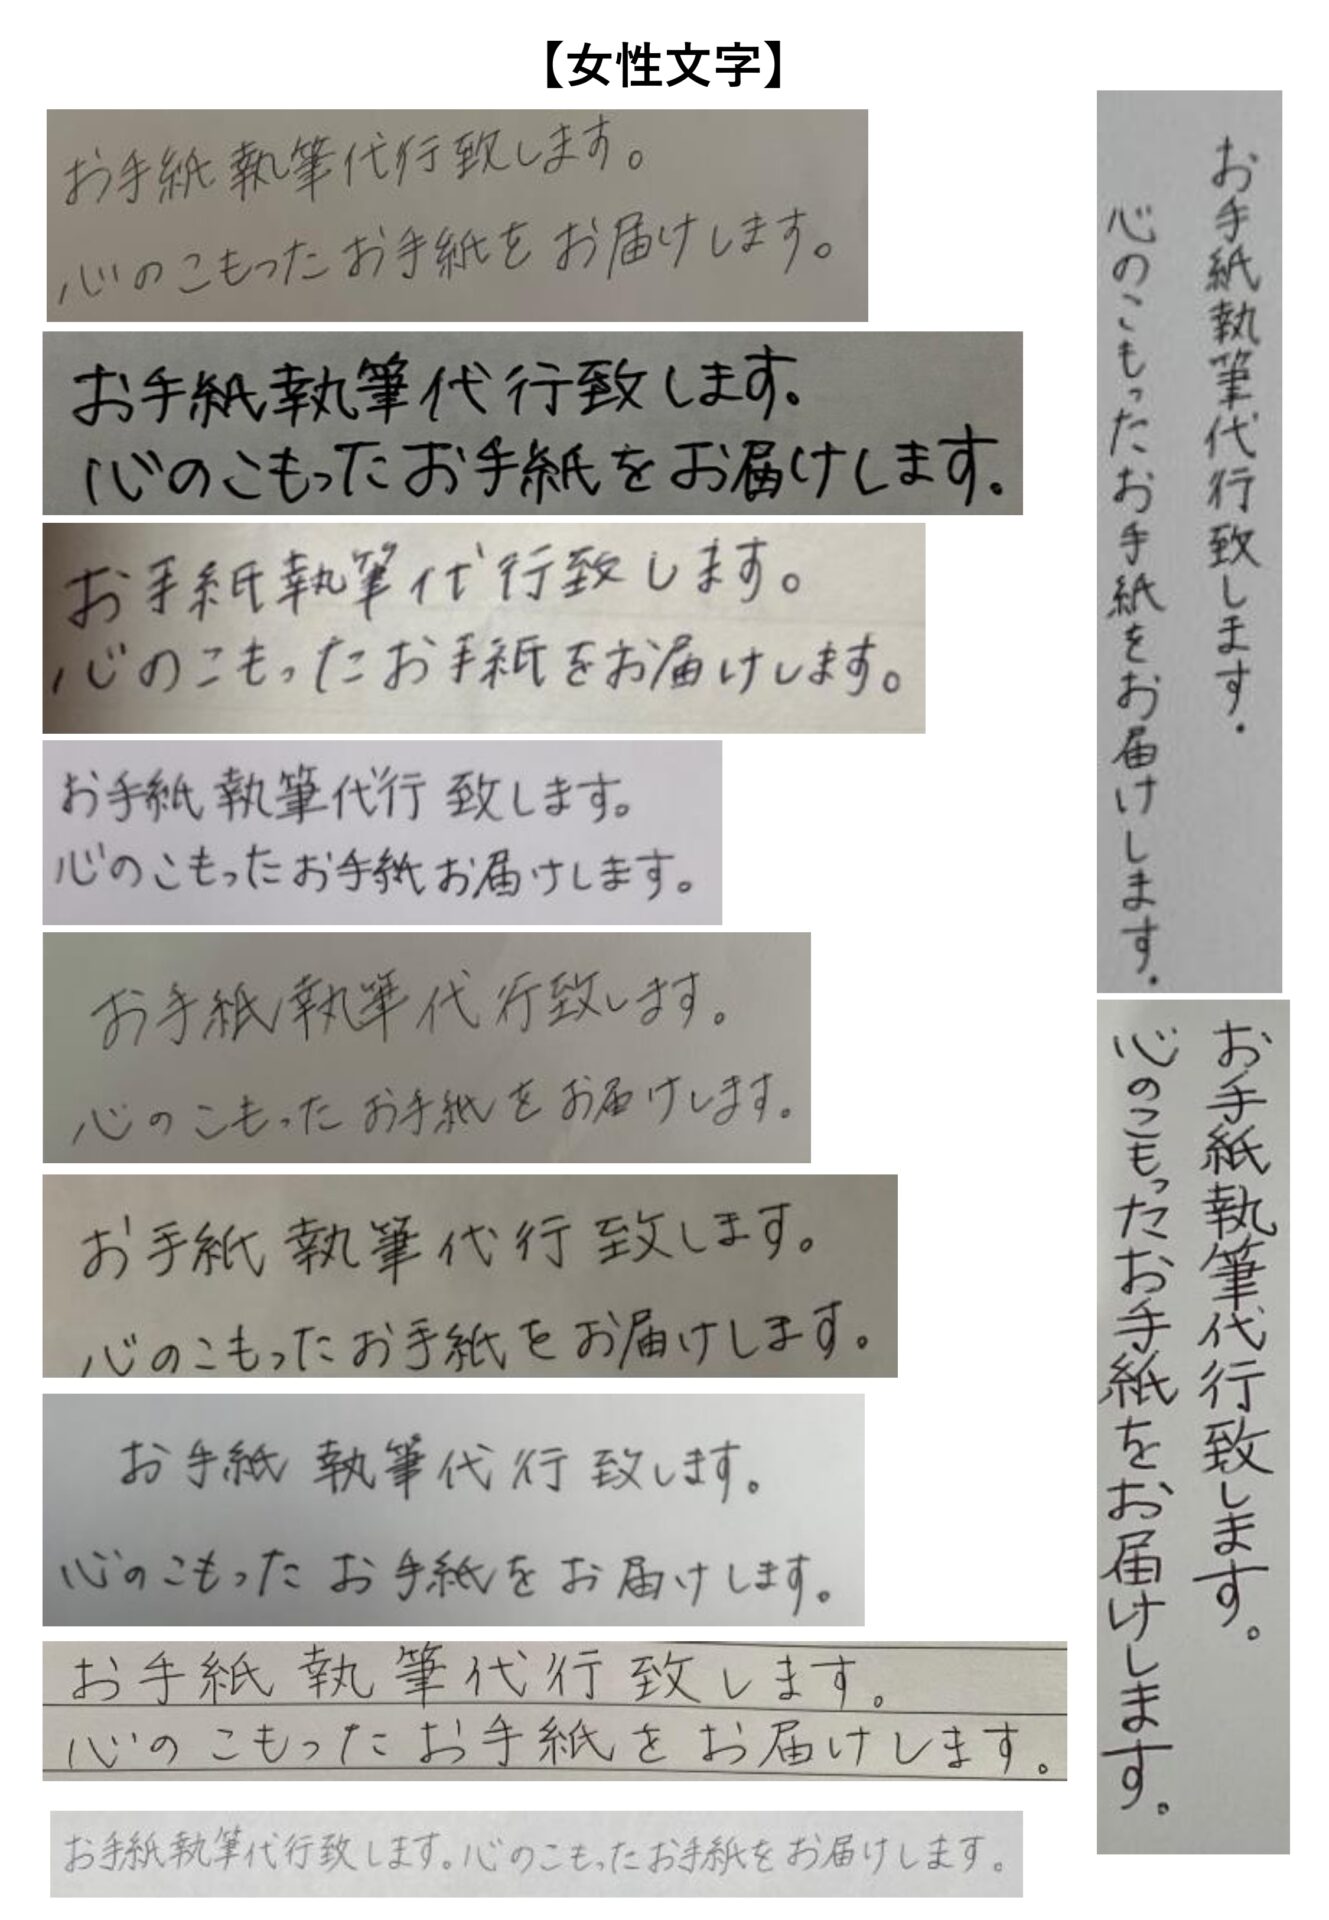 【女性文字】
お手紙執筆代行致します。
心のこもったお手紙をお届けします。
お手紙執筆代行致します。
心のこもったお手紙をお届けします。
お手紙執筆代行致します。
心のこもったお手紙をお届けします。
お手紙執筆代行致します。
心のこもったお手紙お届けします。
お手紙執筆代行致します。
心のこもったお手紙をお届けします。
お手紙執筆代行致します。
心のこもったお手紙をお届けします。
お手紙執筆代行致します。
心のこもったお手紙をお届けします。
お手紙執筆代行致します。
心のこもったお手紙をお届けします。
お手紙執筆代行致します。心のこもったお手紙をお届けします。
お手紙執筆代行致します。
心のこもったお手紙をお届けします。
お手紙執筆代行致します。
心のこもったお手紙をお届けします。